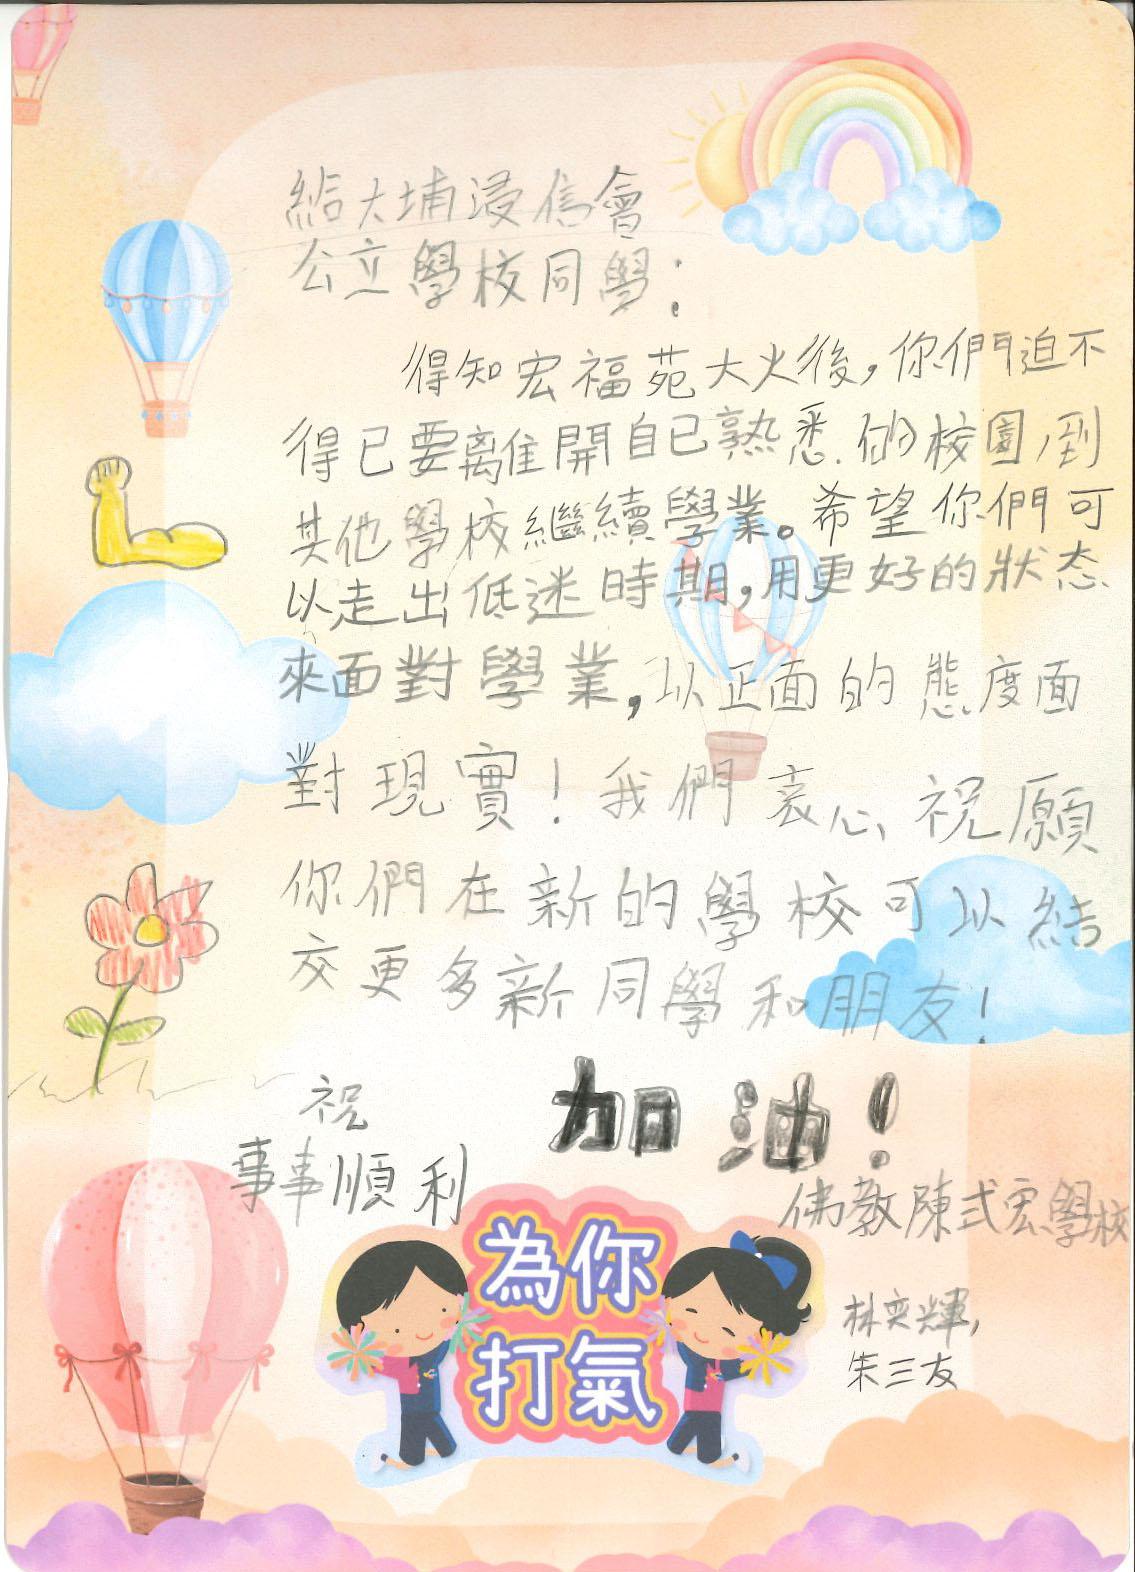 給大埔浸信會
公立學校同學：
得知宏福苑大火後，你們迫不
得已要離開自己熟悉的校園，到
其他學校繼續學業。希望你們可
以走出低迷時期，用更好的狀态
來面對學業，以正面的態度面
對現實！我們衷心祝願
你們在新的學校可以結
交更多新同學和朋友！
加油！
祝
事事順利
佛教陳式宏學校
林奕輝，
朱三友
為你
打氣